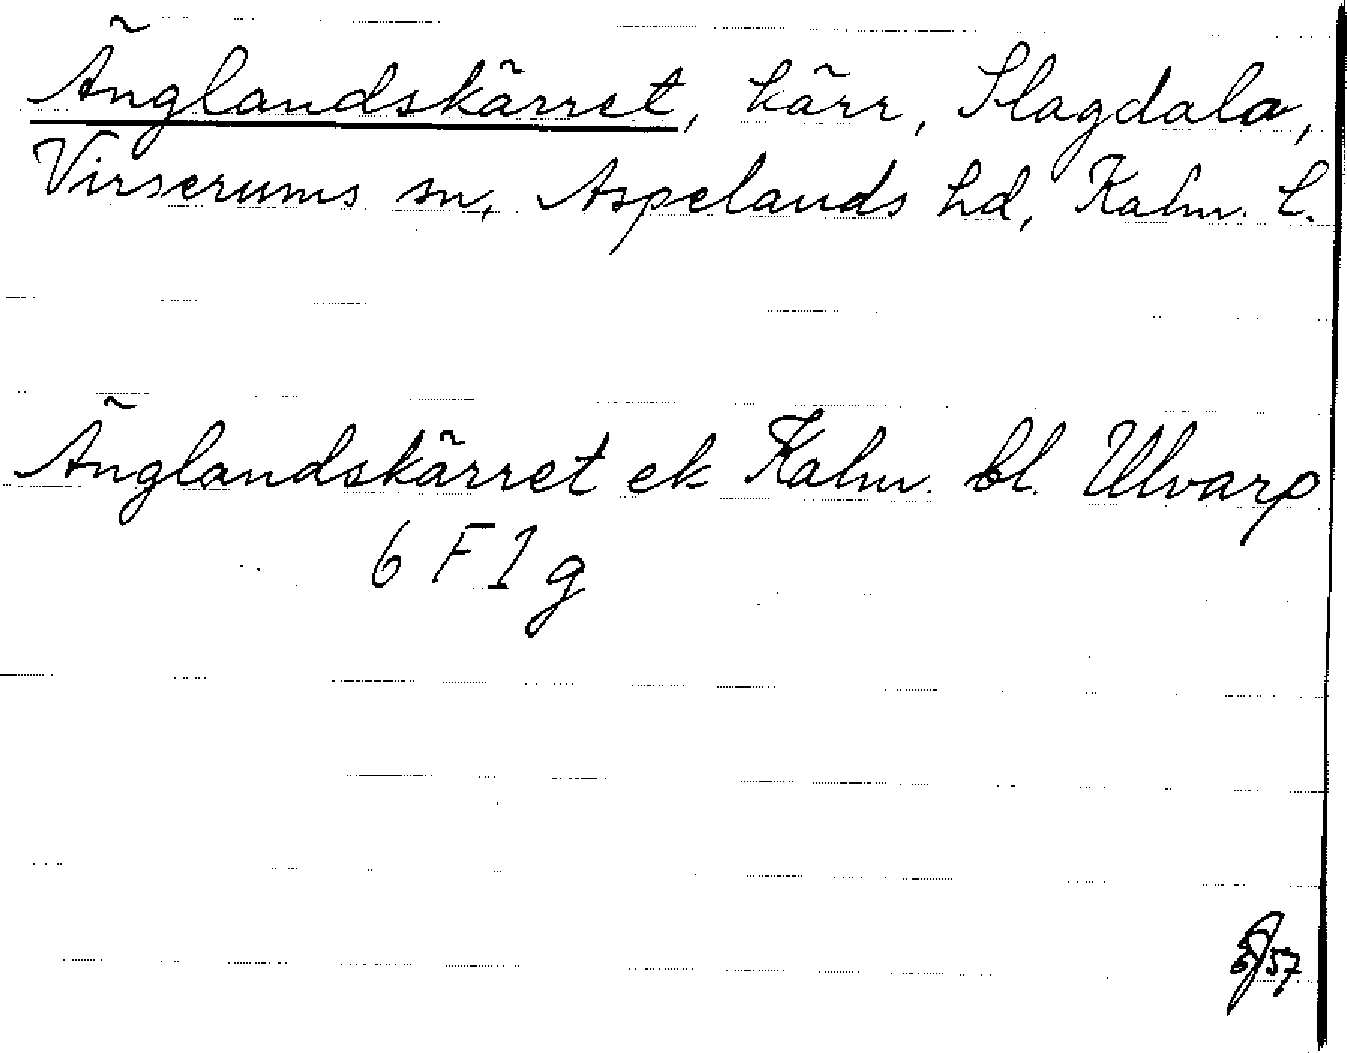 Änglandskärret, kärr, Slagdala,
Virserums sn, Aspelands hd, Kalm. l.
Änglandskärret ek Kalm. bl. Ulvarp
6 F 1 g
57